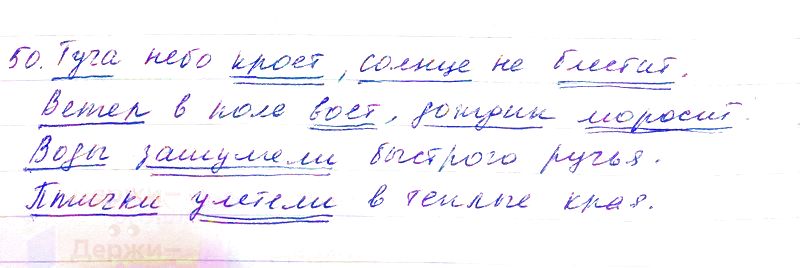 50. Туча небо кроет, солнце не блестит.
Ветер в поле воет, дождик моросит.
Воды зашумели быстрого ручья.
Птички улетели в теплые края.
Держи–
Держи–